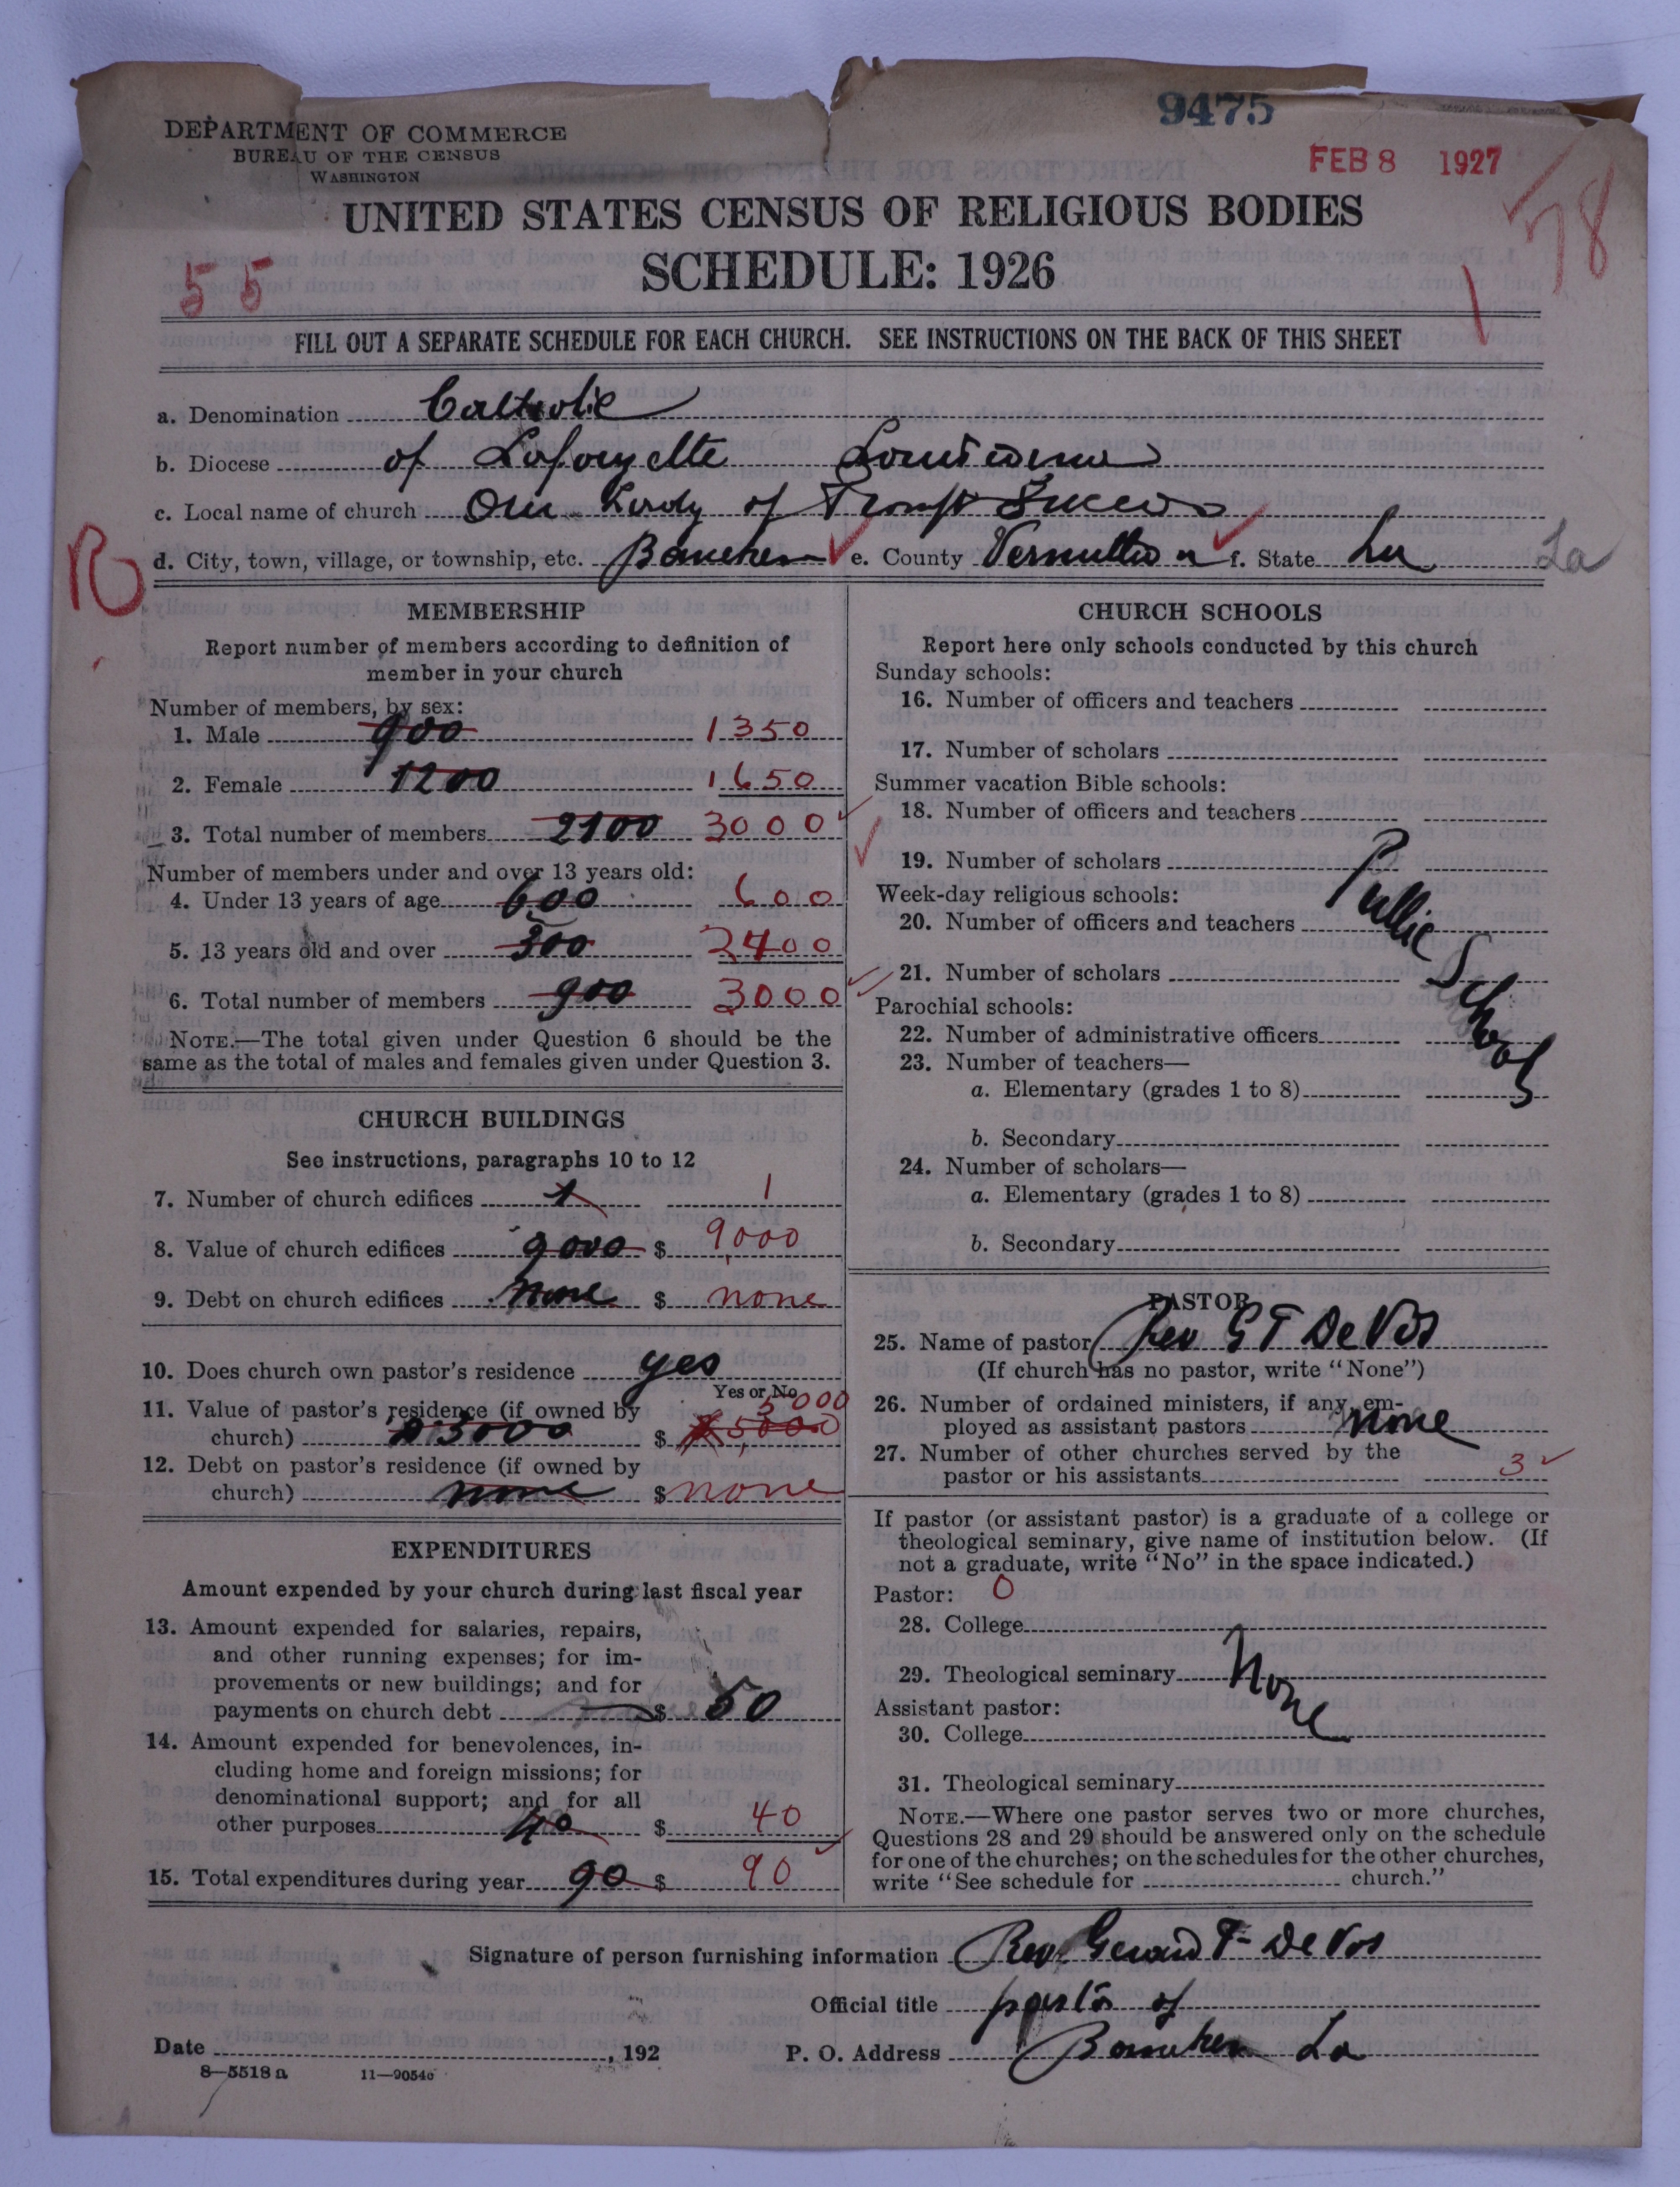 9475
DEPARTMENT OF COMMERCE
BUREAU OF THE CENSUS
WASHINGTON
FEB 8 1927
78
UNITED STATES CENSUS OF RELIGIOUS BODIES
SCHEDULE: 1926
55
FILL OUT A SEPARATE SCHEDULE FOR EACH CHURCH. SEE INSTRUCTIONS ON THE BACK OF THIS SHEET
a. Denomination Catholic
b. Diocese of Lafayette Louisiana
c. Local name of church Our Lady of Prompt Succor
d. City, town, village, or township, etc. e. County Vermillion f. State La La
MEMBERSHIP
Report number of members according to definition of
member in your church
Number of members, by sex:
1. Male 900 1350
2. Female 1200 1650
3. Total number of members 2100 3000
Number of members under and over 13 years old:
4. Under 13 years of age 600 600
5. 13 years old and over 300 2400
6. Total number of members 900 3000
NOTE.—The total given under Question 6 should be the
same as the total of males and females given under Question 3.
CHURCH BUILDINGS
See instructions, paragraphs 10 to 12
7. Number of church edifices 1 1
8. Value of church edifices 9000 $ 9,000
9. Debt on church edifices none $ none
10. Does church own pastor's residence yes
Yes or No
11. Value of pastor's residence (if owned by
church) 3000 $ 5,000 3000
12. Debt on pastor's residence (if owned by
church) none $ none
EXPENDITURES
Amount expended by your church during last fiscal year
13. Amount expended for salaries, repairs,
and other running expenses; for im-
provements or new buildings; and for
payments on church debt $ 50
14. Amount expended for benevolences, in-
cluding home and foreign missions; for
denominational support; and for all
other purposes 40 $ 40
15. Total expenditures during year 90 $ 90
CHURCH SCHOOLS
Report here only schools conducted by this church
Sunday schools:
16. Number of officers and teachers
17. Number of scholars
Summer vacation Bible schools:
18. Number of officers and teachers
19. Number of scholars
Week-day religious schools:
20. Number of officers and teachers
Public School
21. Number of scholars
Parochial schools:
22. Number of administrative officers
23. Number of teachers—
a. Elementary (grades 1 to 8)
b. Secondary
24. Number of scholars—
a. Elementary (grades 1 to 8)
b. Secondary
PASTOR
25. Name of pastor Rev G F De Vos
(If church has no pastor, write "None")
26. Number of ordained ministers, if any, em-
ployed as assistant pastors none
27. Number of other churches served by the
pastor or his assistants 3
If pastor (or assistant pastor) is a graduate of a college or
theological seminary, give name of institution below. (If
not a graduate, write "No" in the space indicated.)
Pastor: 0
28. College
29. Theological seminary None
Assistant pastor:
30. College
31. Theological seminary
NOTE.—Where one pastor serves two or more churches,
Questions 28 and 29 should be answered only on the schedule
for one of the churches; on the schedules for the other churches,
write "See schedule for church."
Signature of person furnishing information Rev Gerard F De Vos
Official title pastor of
Date , 192 P. O. Address La
8—5518a 11—9054